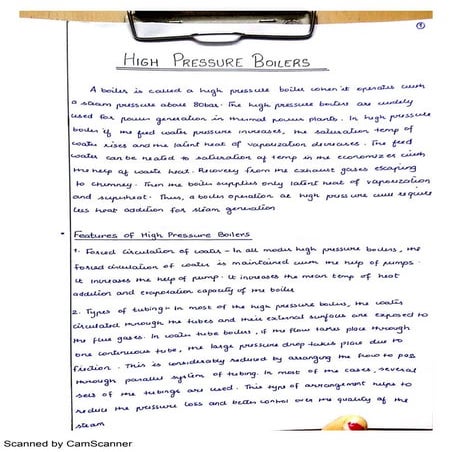 1
HIGH PRESSURE BOILERS
A boiler is called a high pressure boiler when it operates with
a steam pressure above 80bar. The high pressure boilers are widely
used for power generation in thermal power plants. In high pressure
boilers if the feed water pressure increases, the saturation temp of
water rises and the latent heat of vapourization decreases. The feed
water can be heated to saturation of temp in the economizer with
the help of waste heat. Recovery from the exhaust gases escaping
to chimney. Then the boiler supplies only latent heat of vapourization
and superheat. Thus, a boiler operation at high pressure will require
less heat addition for steam generation
Features of High Pressure Boilers
1. Forced circulation of water - In all modern high pressure boilers, the
forced circulation of water is maintained with the help of pumps.
It increases the help of pump. It increases the mean temp of heat
addition and evaporation capacity of the boiler
2. Types of tubing - In most of the high pressure boilers, the water
circulated through the tubes and their external surfaces are exposed to
the flue gases. In water tube boilers, if the flow takes place through
one continuous tube, the large pressure drop takes place due to
friction. This is considerably reduced by arranging the flow to pass
through parallel system of tubing. In most of the cases, several
sets of the tubings are used. This type of arrangement helps to
reduce the pressure loss and better control over the quality of the
steam
Scanned by CamScanner